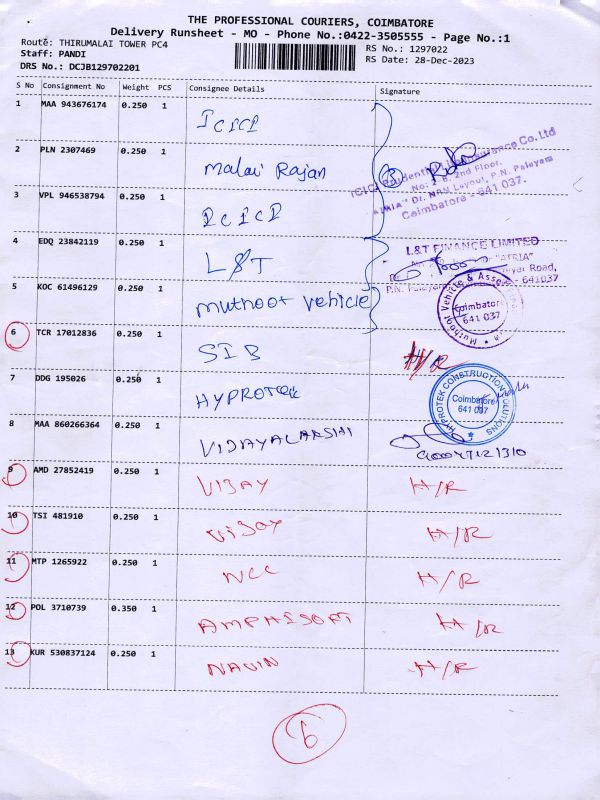 THE PROFESSIONAL COURIERS, COIMBATORE
Delivery Runsheet - MO - Phone No.:0422-3505555 - Page No.:1
Route: THIRUMALAI TOWER PC4
RS No.: 1297022
Staff: PANDI
RS Date: 28-Dec-2023
DRS No.: DCJB129702201
S No Consignment No Weight PCS Consignee Details Signature
1 MAA 943676174 0.250 1 ICICI
2 PLN 2307469 0.250 1 Malai Rajan
3 VPL 946538794 0.250 1 ICICI
Coimbatore - 641 037.
4 EDQ 23842119 0.250 1 L&T
L&T FINANCE LIMITED
5 KOC 61496129 0.250 1 Muthoot vehicle
Coimbatore
641 037
6 TCR 17012836 0.250 1 SIB H/R
7 DDG 195026 0.250 1 HYPROTEK
HYPROTEK CONSTRUCTION SOLUTIONS
Coimbatore
641 037
8 MAA 860266364 0.250 1 VIJAYALAKSHI
9 AMD 27852419 0.250 1 VIJAY H/R
10 TSI 481910 0.250 1 VIJAY H/R
11 MTP 1265922 0.250 1 NCC H/R
12 POL 3710739 0.350 1 AMPHISOFT H/R
13 KUR 530837124 0.250 1 NAVIN H/R
6